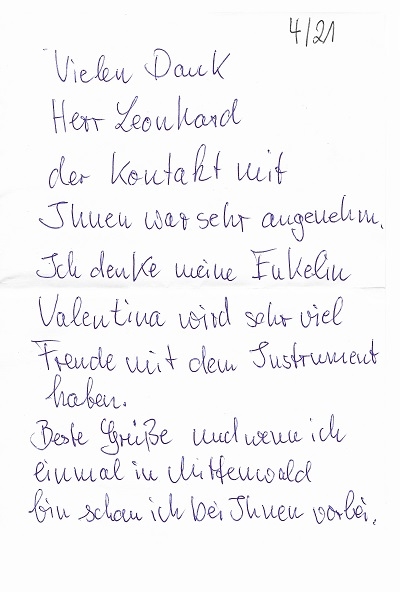 4/21
Vielen Dank
Herr Leonhard
der Kontakt mit
Ihnen war sehr angenehm.
Ich denke meine Enkelin
Valentina wird sehr viel
Freude mit dem Instrument
haben.
Beste Grüße und wenn ich
einmal in Mittenwald
bin schau ich bei Ihnen vorbei.